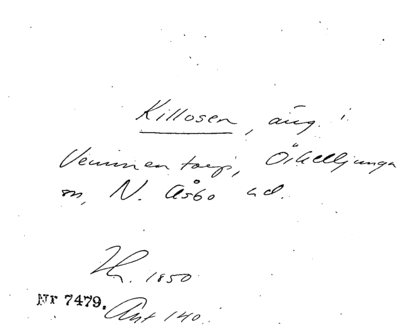 Killosen, äng i
Vemmentorp, Örkelljunga
sn, N. Åsbo hd.
Hr. 1850
Nr 7479. Ant 140.